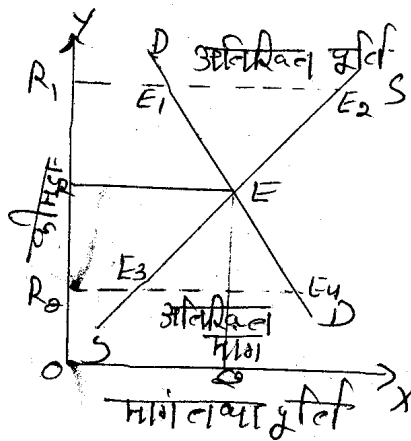 Y
D अतिरिक्त पूर्ति
R1 E1 E2 S
कीमत P E
R0 E3 E4
S अतिरिक्त D
मांग
O Q X
मांग तथा पूर्ति